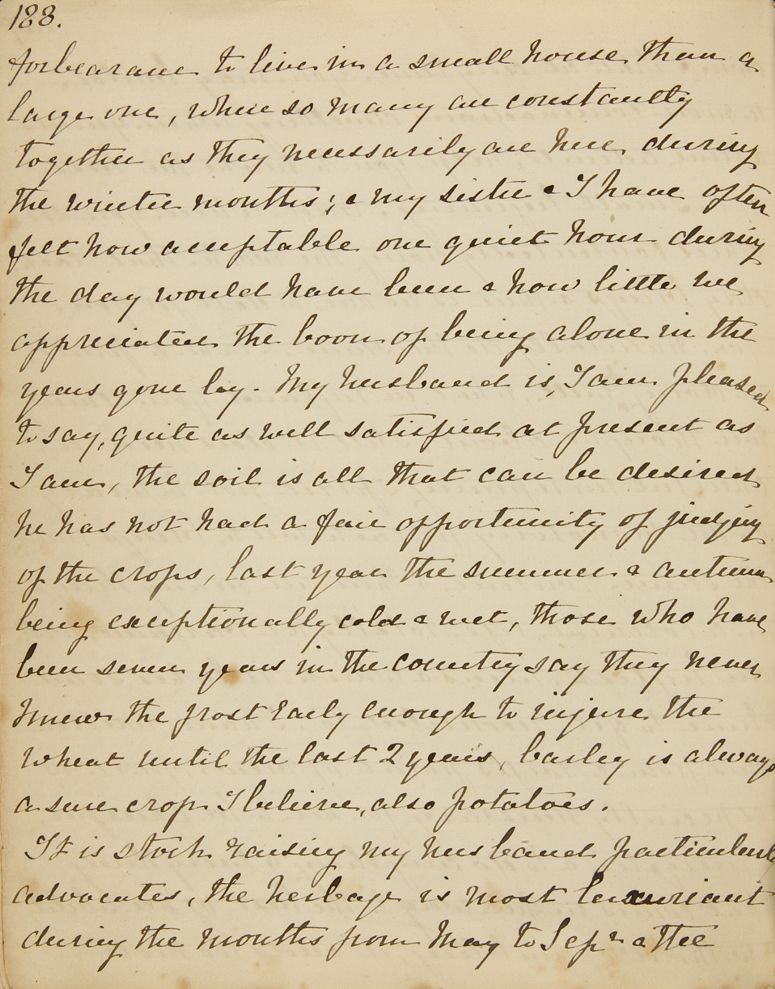 188.
forbearance to live in a small house than a
large one, where so many are constantly
together as they necessarily are here during
the winter months; & my sister & I have often
felt how acceptable one quiet hour during
the day would have been & how little we
appreciated the boon of being alone in the
years gone by. My husband is, I am pleased
to say, quite as well satisfied at present as
I am, the soil is all that can be desired
he has not had a fair opportunity of judging
of the crops, last year the summer & autumn
being exceptionally cold & wet, those who have
been seven years in the country say they never
knew the frost early enough to injure the
wheat until the last 2 years, barley is always
a sure crop I believe, also potatoes.
It is stock raising my husband particularly
advocates, the herbage is most luxuriant
during the months from May to Sepr &